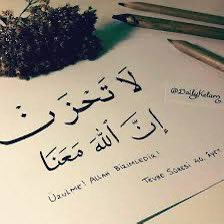 لَا تَحْزَنْ
إِنَّ اللّٰهَ مَعَنَا
@DailyKelam
ÜZÜLME! ALLAH BİZİMLEDİR!
TEVBE SÛRESİ 40. ÂYET